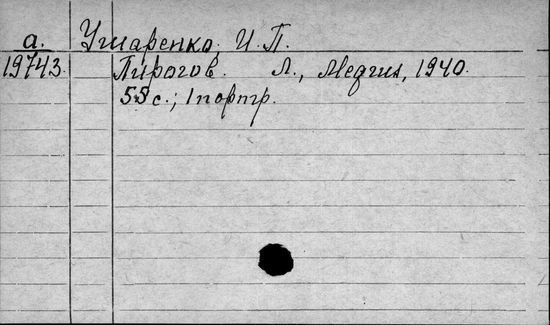 а. Ушаренко, И. П.
19743. Пирогов. Л., Медгиз, 1940.
55 с.; 1 портр.